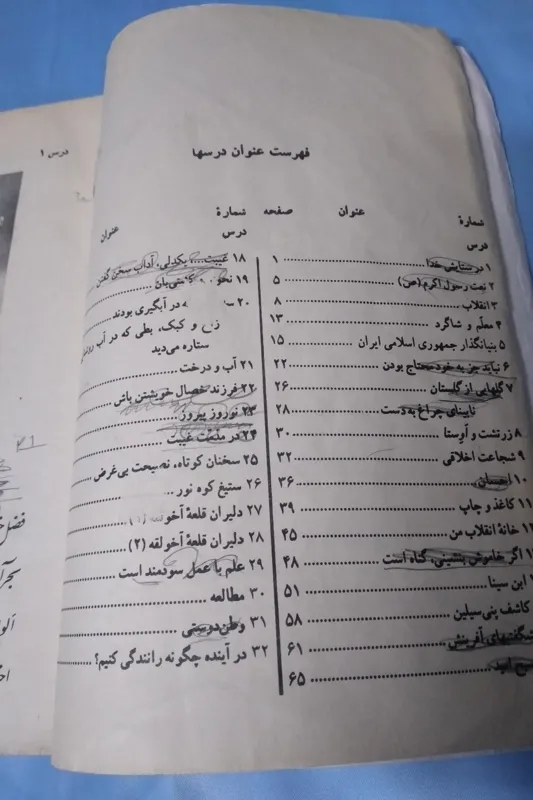 فهرست عنوان درسها
شمارهٔ درس عنوان صفحه
۱ در ستایش خدا ۱
۲ نعت رسول اکرم (ص) ۵
۳ انقلاب ۸
۴ معلّم و شاگرد ۱۳
۵ بنیانگذار جمهوری اسلامی ایران ۱۵
۶ نباید جز به خود محتاج بودن ۲۲
۷ گلهایی از گلستان ۲۶
نابینای چراغ به دست ۲۸
۸ زرتشت و اَوِستا ۳۰
۹ شجاعت اخلاقی ۳۲
۱۰ احسان ۳۶
۱۱ کاغذ و چاپ ۳۹
۱۲ خانهٔ انقلاب من ۴۵
اگر خاموش بنشینی، گناه است ۴۸
ابن سینا ۵۱
کاشف پنی‌سیلین ۵۸
شگفتیهای آفرینش ۶۱
امید ۶۵
شمارهٔ درس عنوان
۱۸ غیبت...، یکدلی، آداب سخن گفتن
۱۹ نحو کشتی‌بان
۲۰ در آبگیری بودند
و کبک، بطی که در آب روشنی
ستاره می‌دید
۲۱ آب و درخت
۲۲ فرزند خصال خویشتن باش
۲۳ نوروز پیروز
۲۴ در مذمّت غیبت
۲۵ سخنان کوتاه، نصیحت بی‌غرض
۲۶ ستیغ کوه نور
۲۷ دلیران قلعهٔ آخولقه (۱)
۲۸ دلیران قلعهٔ آخولقه (۲)
۲۹ علم با عمل سودمند است
۳۰ مطالعه
۳۱ وطن‌دوستی
۳۲ در آینده چگونه رانندگی کنیم؟
درس ۱